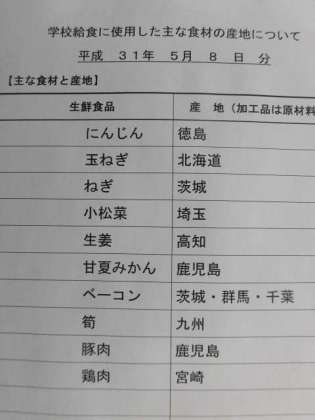 学校給食に使用した主な食材の産地について
平成 31年 5月 8 日 分
【主な食材と産地】
生鮮食品 産 地（加工品は原材料
にんじん 徳島
玉ねぎ 北海道
ねぎ 茨城
小松菜 埼玉
生姜 高知
甘夏みかん 鹿児島
ベーコン 茨城・群馬・千葉
筍 九州
豚肉 鹿児島
鶏肉 宮崎